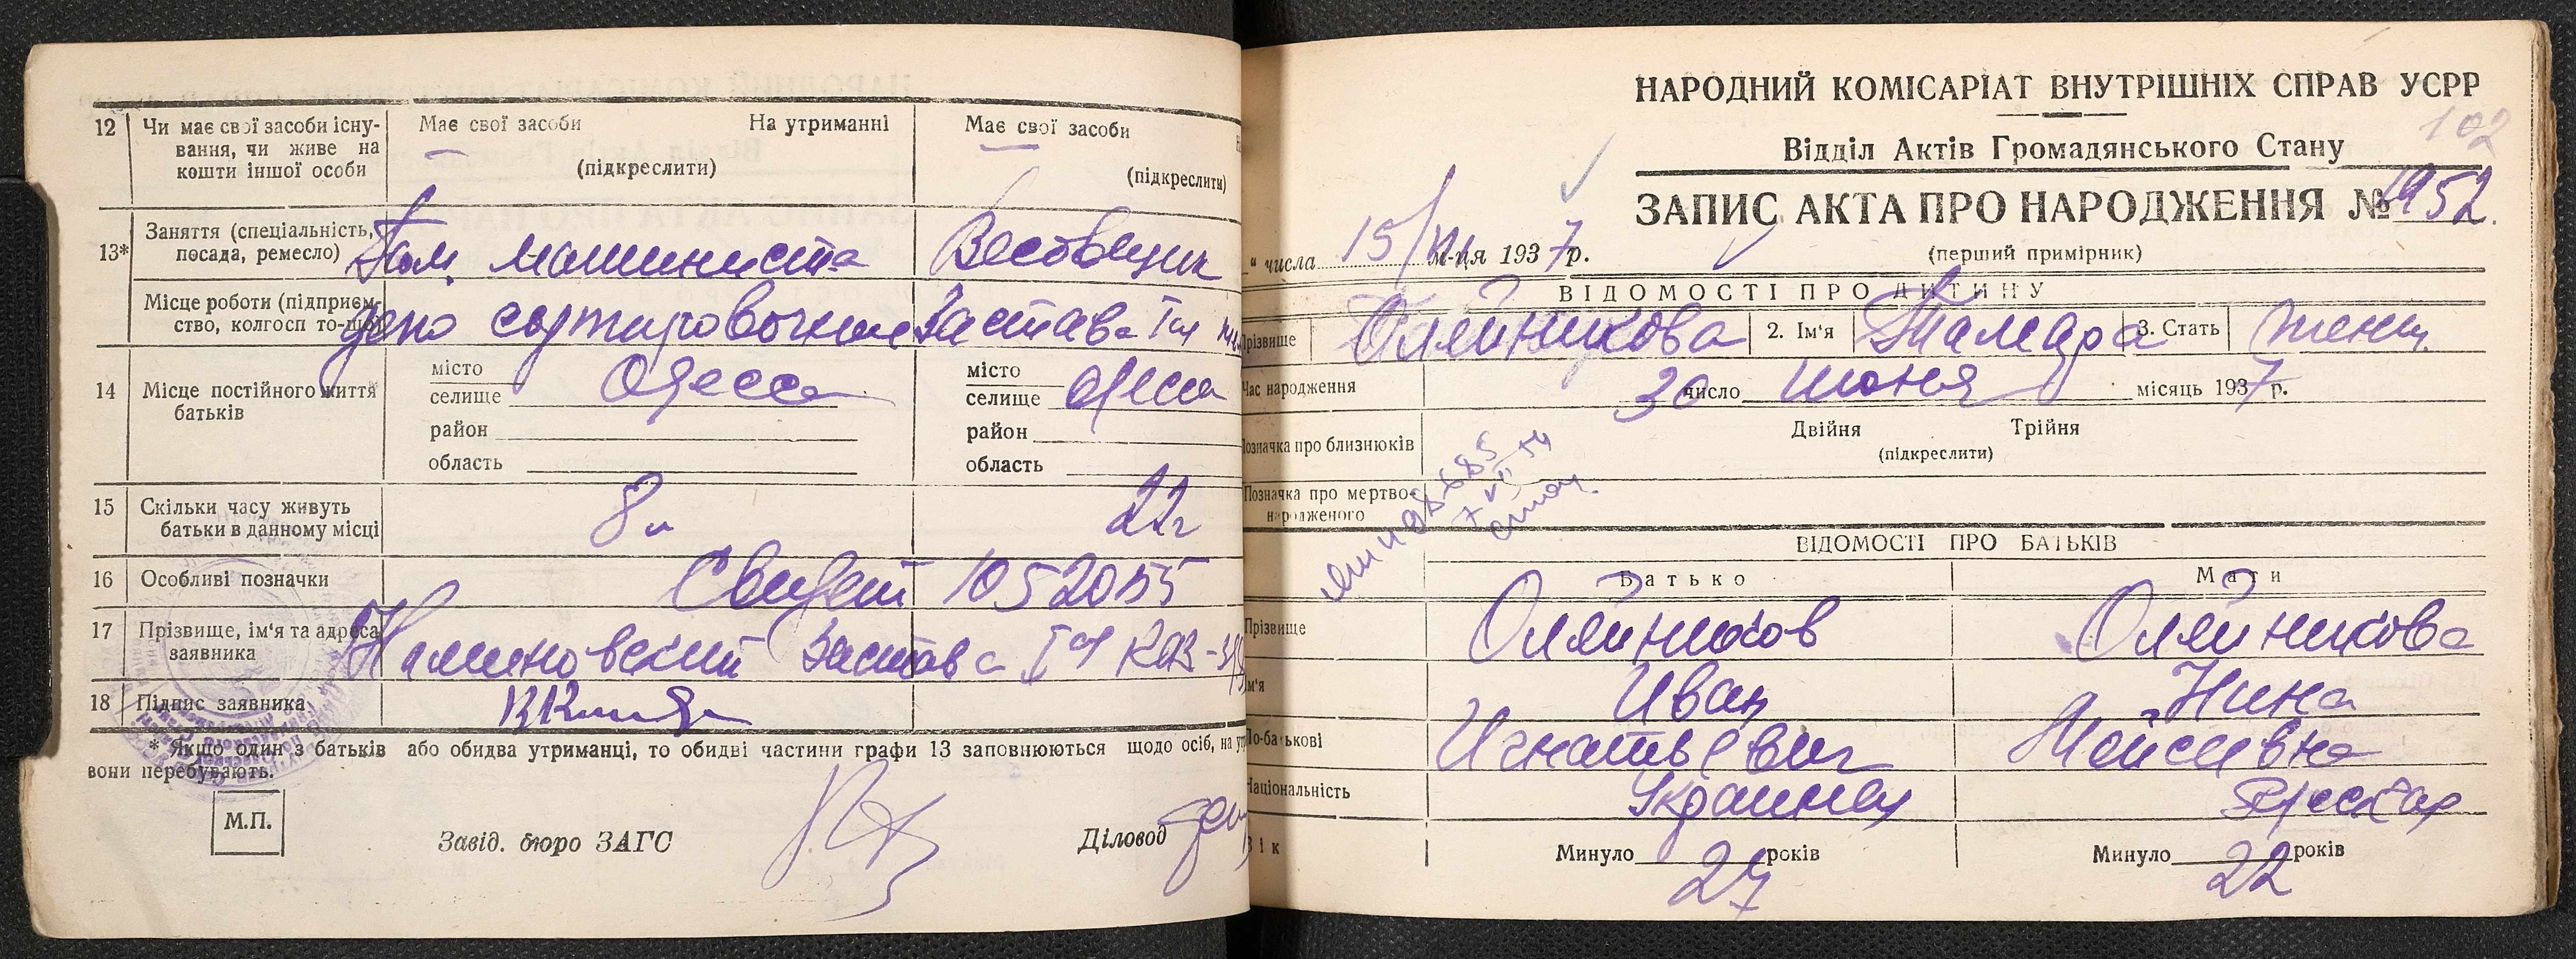 12 Чи має свої засоби існу-
вання, чи живе на
кошти іншої особи
Має свої засоби На утриманні
(підкреслити)
Має свої засоби
(підкреслити)
13* Заняття (спеціальність,
посада, ремесло)
Пом. машиниста
Весовщик
Місце роботи (підприєм-
ство, колгосп то-що)
депо сортировочное
Застава Iая
14 Місце постійного життя
батьків
місто
селище Одесса
район
область
місто
селище Одесса
район
область
15 Скільки часу живуть
батьки в данному місці
8 л
22 г
16 Особливі позначки
Свидет 1052055
17 Прізвище, ім'я та адреса
заявника
Застава Iая
18 Підпис заявника
* Якщо один з батьків або обидва утриманці, то обидві частини графи 13 заповнюються щодо осіб, на
вони перебувають.
М.П.
Завід. бюро ЗАГС
Діловод
НАРОДНИЙ КОМІСАРІАТ ВНУТРІШНІХ СПРАВ УСРР
102
Відділ Актів Громадянського Стану
ЗАПИС АКТА ПРО НАРОДЖЕННЯ № 1952.
(перший примірник)
" числа 15/VII м-ця 1937 р.
ВІДОМОСТІ ПРО ДИТИНУ
Прізвище Олейникова 2. Ім'я Тамара 3. Стать женск.
Час народження 30 число Июня місяць 1937 р.
Позначка про близнюків
Двійня Трійня
(підкреслити)
Позначка про мертво-
народженого
ВІДОМОСТІ ПРО БАТЬКІВ
Батько Мати
Прізвище Олейников Олейникова
Ім'я Иван Нина
По-батькові Игнатьевич Мойсеевна
Національність Украинец Русская
Вік Минуло 27 років Минуло 22 років